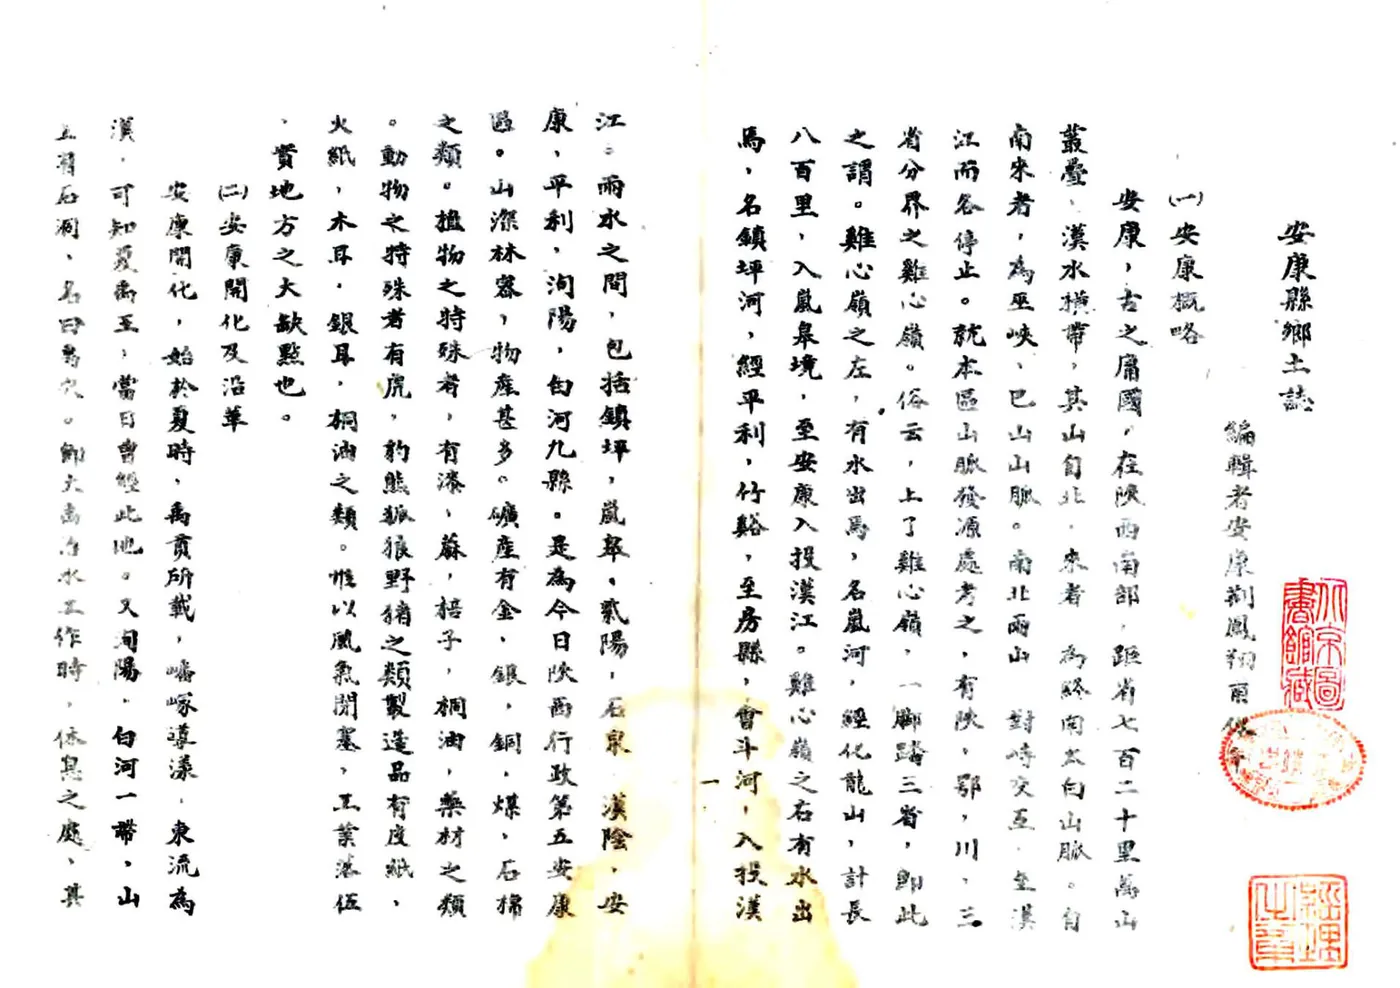 安康縣鄉土誌
編輯者安康荆鳳翔
(一)安康概略
安康，古之庸國，在陝西南部，距省七百二十里萬山
叢疊、漢水橫帶，其山自北，來者　為終南太白山脈。自
南來者，為巫峽、巴山山脈。南北兩山　對峙交互．至漢
江而各停止。就本區山脈發源處考之，有陝，鄂，川，三
省分界之雞心嶺。俗云，上了雞心嶺，一腳踏三省，即此
之謂。雞心嶺之左，有水出焉，名嵐河，經化龍山，計長
八百里，入嵐皋境，至安康入投漢江。雞心嶺之右有水出
焉，名鎮坪河，經平利，竹谿，至房縣，會斗河，入投漢
一
江＝兩水之間，包括鎮坪，嵐皋．紫陽，石泉．漢陰．安
康，平利，洵陽，白河九縣。是為今日陝西行政第五安康
區。山深林密，物產甚多。礦產有金，銀，銅．煤，石棉
之類。植物之特殊者，有漆，蔴，棓子，桐油，藥材之類
。動物之特殊者有虎，豹熊狐狼野猪之類製造品有皮紙，
火紙，木耳，銀耳，桐油之類。惟以風氣閉塞，工業落伍
，實地方之大缺點也。
(二)安康開化及沿革
安康開化，始於夏時，禹貢所載，嶓冢導漾．東流為
漢．可知夏禹王，當日曾經此地。又洵陽．白河一帶，山
上有石洞，名曰禹穴。即大禹治水工作時，休息之處，其
北京圖書館藏